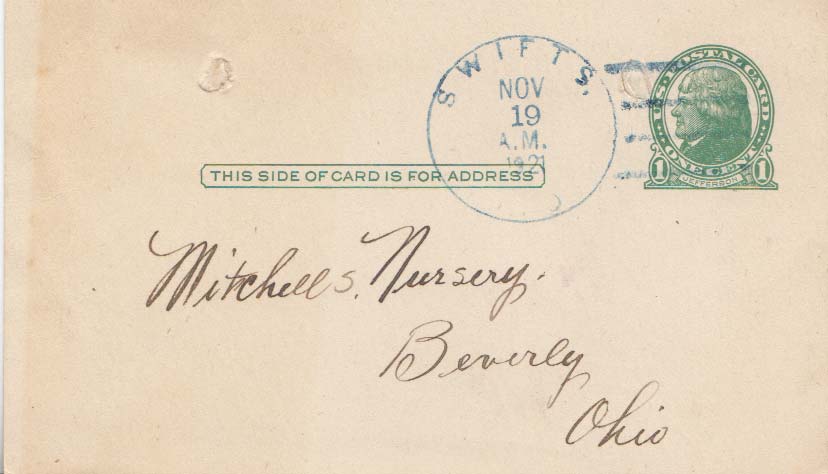 SWIFTS.
NOV
19
A.M.
1921
O
U.S. POSTAL CARD
ONE CENT
1 JEFFERSON 1
THIS SIDE OF CARD IS FOR ADDRESS
Mitchells. Nursery.
Beverly
Ohio